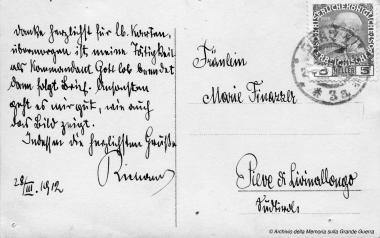 danke herzlichst für lb. Karten,
übermorgen ist meine Tätigkeit
als Kommandant Gott lob beendet
dann folgt Brief. Ansonsten
geht es mir gut, wie auch
das Bild zeigt.
Indessen die herzlichsten Grüße
Richard
28/III. 1912
Fräulein
Marie Finazzer
Pieve di Livinallongo
Südtirol
HELLER
3a
© Archivio della Memoria sulla Grande Guerra